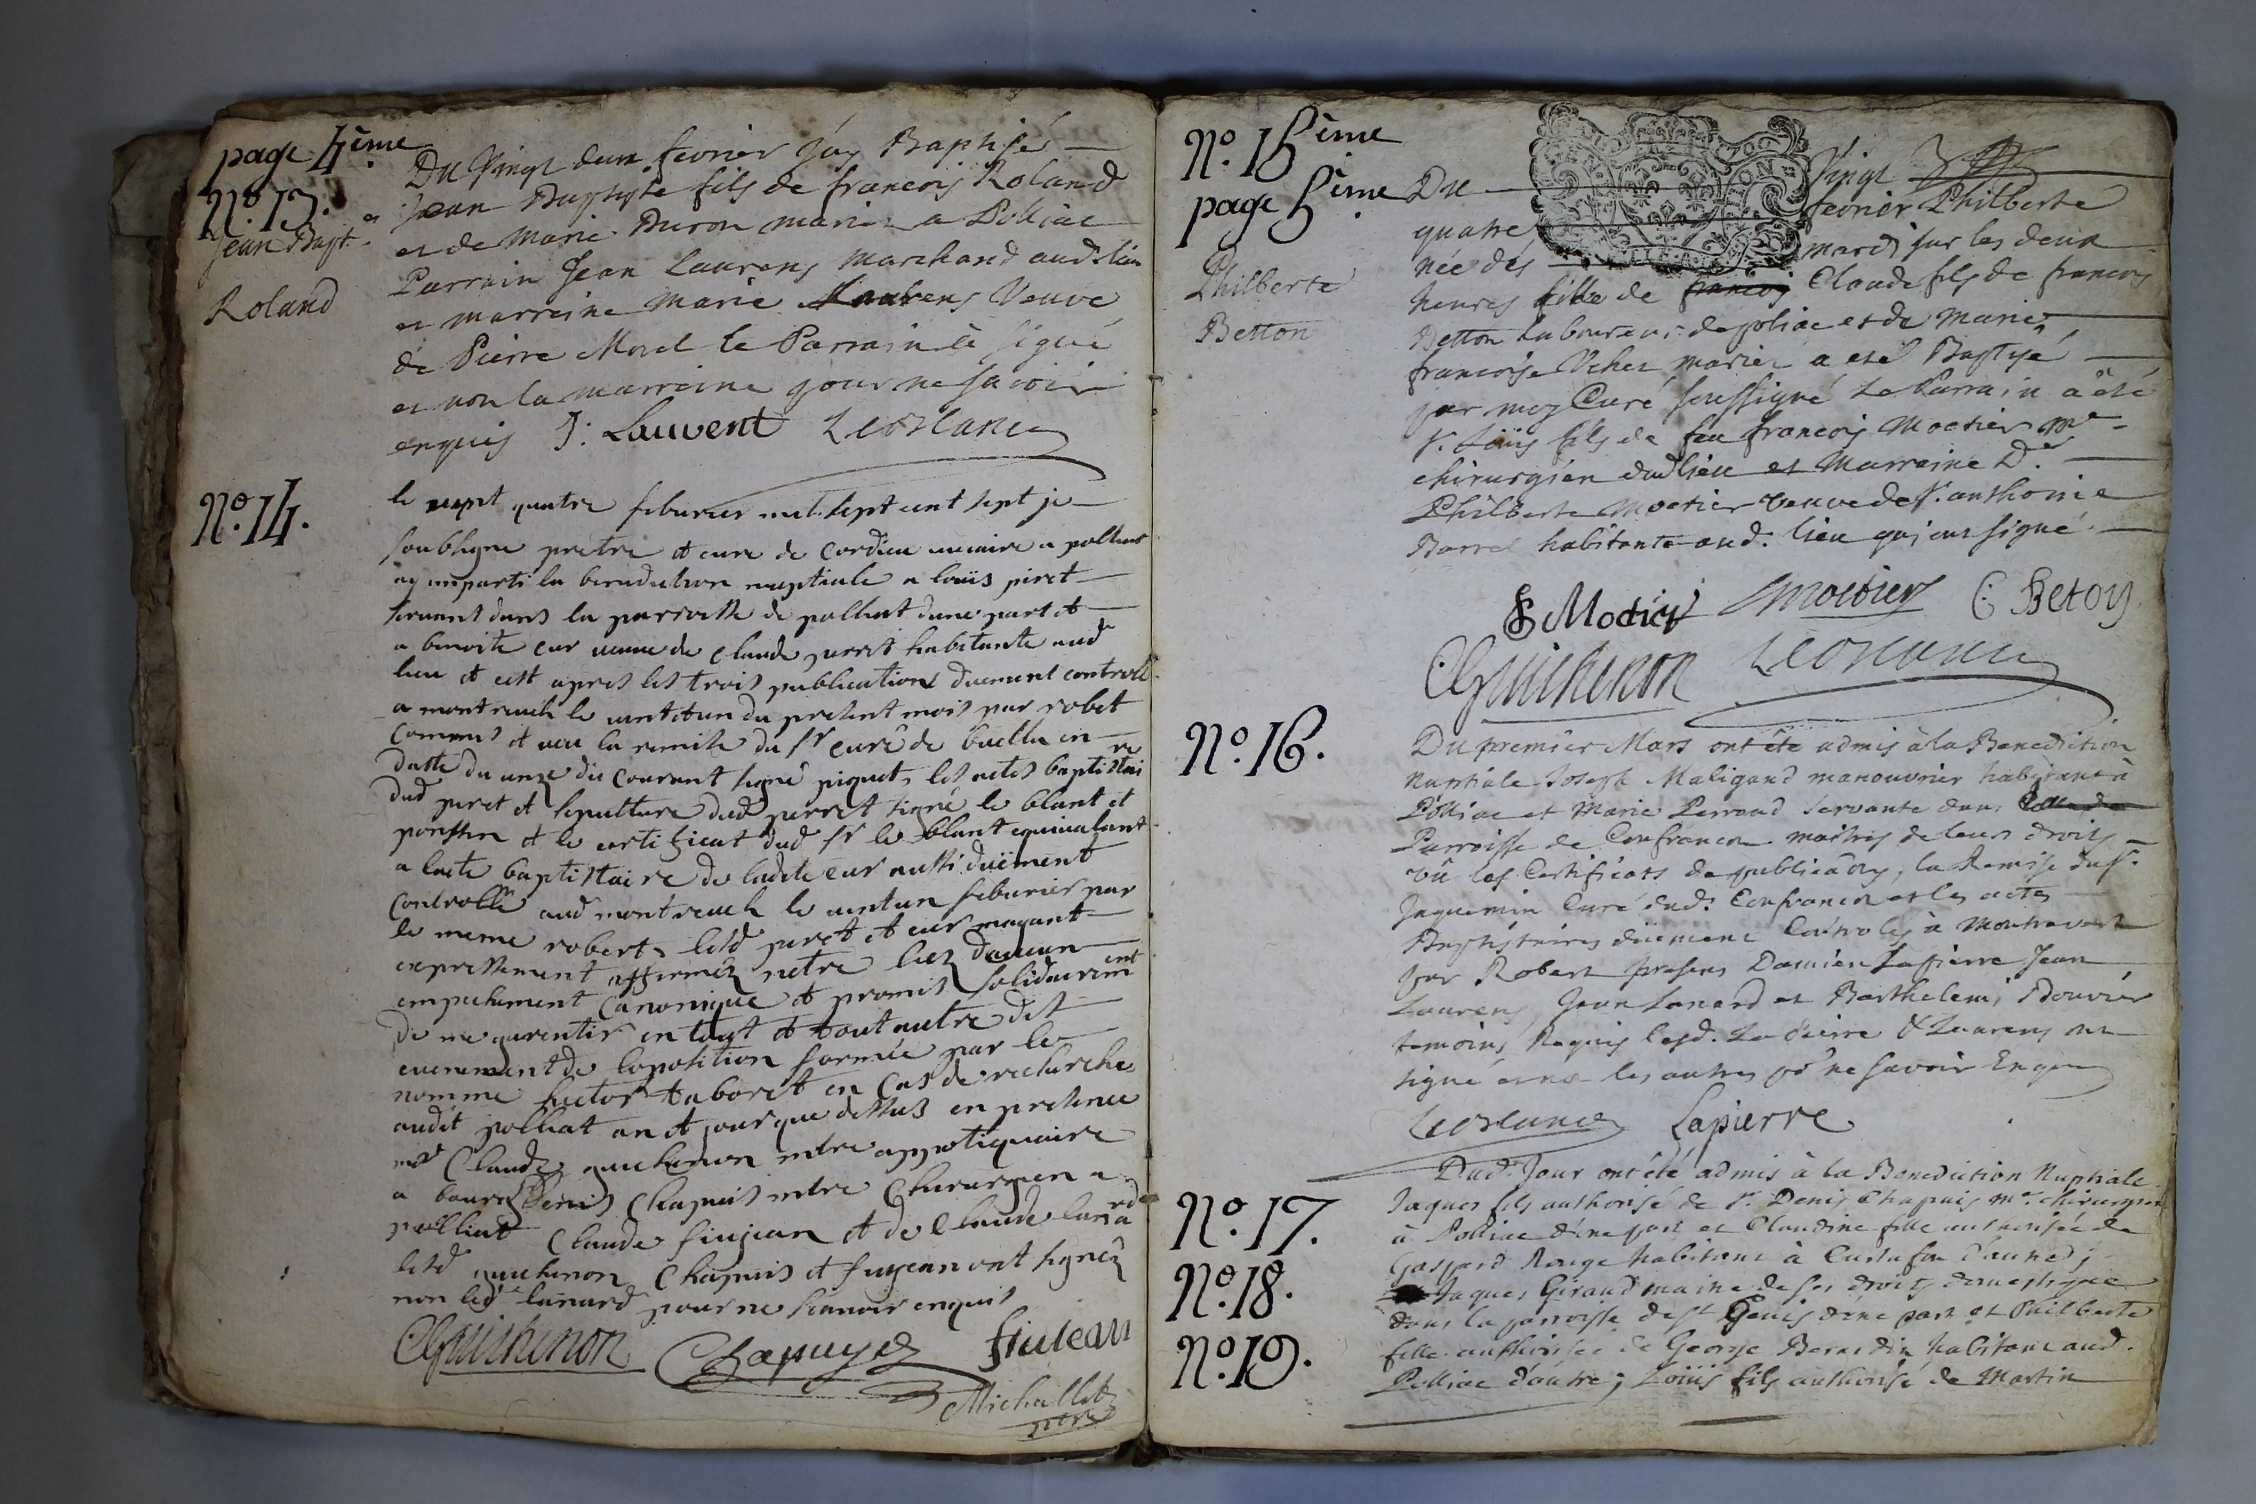 page 4ème
No. 13.
Jean Bapt.
Roland
Du Vingt deux fevrier j'ay Baptisé
Jean Baptyste fils de francois Roland
et de Marie Buron mariez a Polliac
Parrain Jean Laurens Marchand aud. lieu
et marreine Marie Laurens Veuve
de Pierre Morel le Parrain à signé
et non la marreine pour ne savoir
enquis J: Laurent Leblanc
No. 14.
le vingt quatre feburier mil sept cent sept je
soubsigne pretre et cure de Cordieu vicaire a polliat
ay imparti la benediction nuptiale a louis piret
servant dans la parroisse de polliat dune part et
a benoite cur veuve de Claude perret habitante aud
lieu et cest apres les trois publications duement controlle
a montreuel le vintetun du present mois par robet
Commis et veu la remise du sr curé de buella en
datte du unze du Courant signé piquet, les actes baptistaire
dud piret et sepulture dud perret signé le blant et
ponssin et le certificat dud sr le blant equivalant
a lacte baptistaire de ladite cur aussi duëment
Controllé aud montreuel le vintun feburier par
le meme robert, lesd piret et cur mayant
expressement affirméz netre liez daucun
empechement Canonique et promis solidairement
de me garentir en tout et tout autre dit
evenement de loposition formée par le
nommé hector taboret en Cas de recherche
audit polliat an et jour que dessus en presence
mr Claude guichenon mtre appotiquaire
a bourg Denis Chapuis mtre Chirurgien a
polliat Claude finjean et de Claude lanard
lesd guichenon Chapuis et finjean ont signez
non led lanard pour ne scavoir enquis
CGuichenon Chapuys finiean
Michallet
ptre
No. 15ème
page 5ème
Philberte
Betton
Du Vingt
quatre fevrier Philberte
née dés mardi sur les deux
heures fille de francois Claude fils de francois
Betton Laboureur de poliac et de Marie
francoise Vcher mariez a eté Baptysé
par moy Curé soussigné Le Parrain à été
Sr. Loüis fils de feu francois Moctier Mre
chirurgien dud lieu et Marreine De.
Philberte Moctier veuve de Sr. anthoine
Borrel habitante aud. lieu qui ont signé.
P Moctier Moctier C Betoy
CGuichenon Leblanc
No. 16.
Du premier Mars ont été admis à la Benediction
Nuptiale Joseph Maligand manouvrier habitant à
Polliac et Marie Perroud Servante dans
Parroisse de Confrancon maitres de leurs droits
vû les Certificats de publicâons, la Remise du Sr.
Jaquemin Curé dud: Confrancon et les actes
Baptistaires düement Controlés à Montrevert
par Robert presens Damien Lapierre Jean
Laurens, Jean Lanard et Barthelemi Bouvier
temoins Requis lesd. La Pierre & Laurens ont
signé et non les autres pr ne savoir Enquis
Leblanc Lapierre
No. 17.
Dud. Jour ont été admis à la Benediction Nuptiale
Jaques fils authorisé de Sr. Denis Chapuis mre. chirurgien
à Polliac d'une part et Claudine fille authorisée de
Gaspard Rouge habitant à Custafon d'autre;
No. 18.
Jaques Giraud maitre de ses droits domestique
dans la parroisse de St Genis d'une part et Philberte
No. 19.
fille authorisée de George Berardin habitant aud.
Polliac d'autre; Loüis fils authorisé de Martin